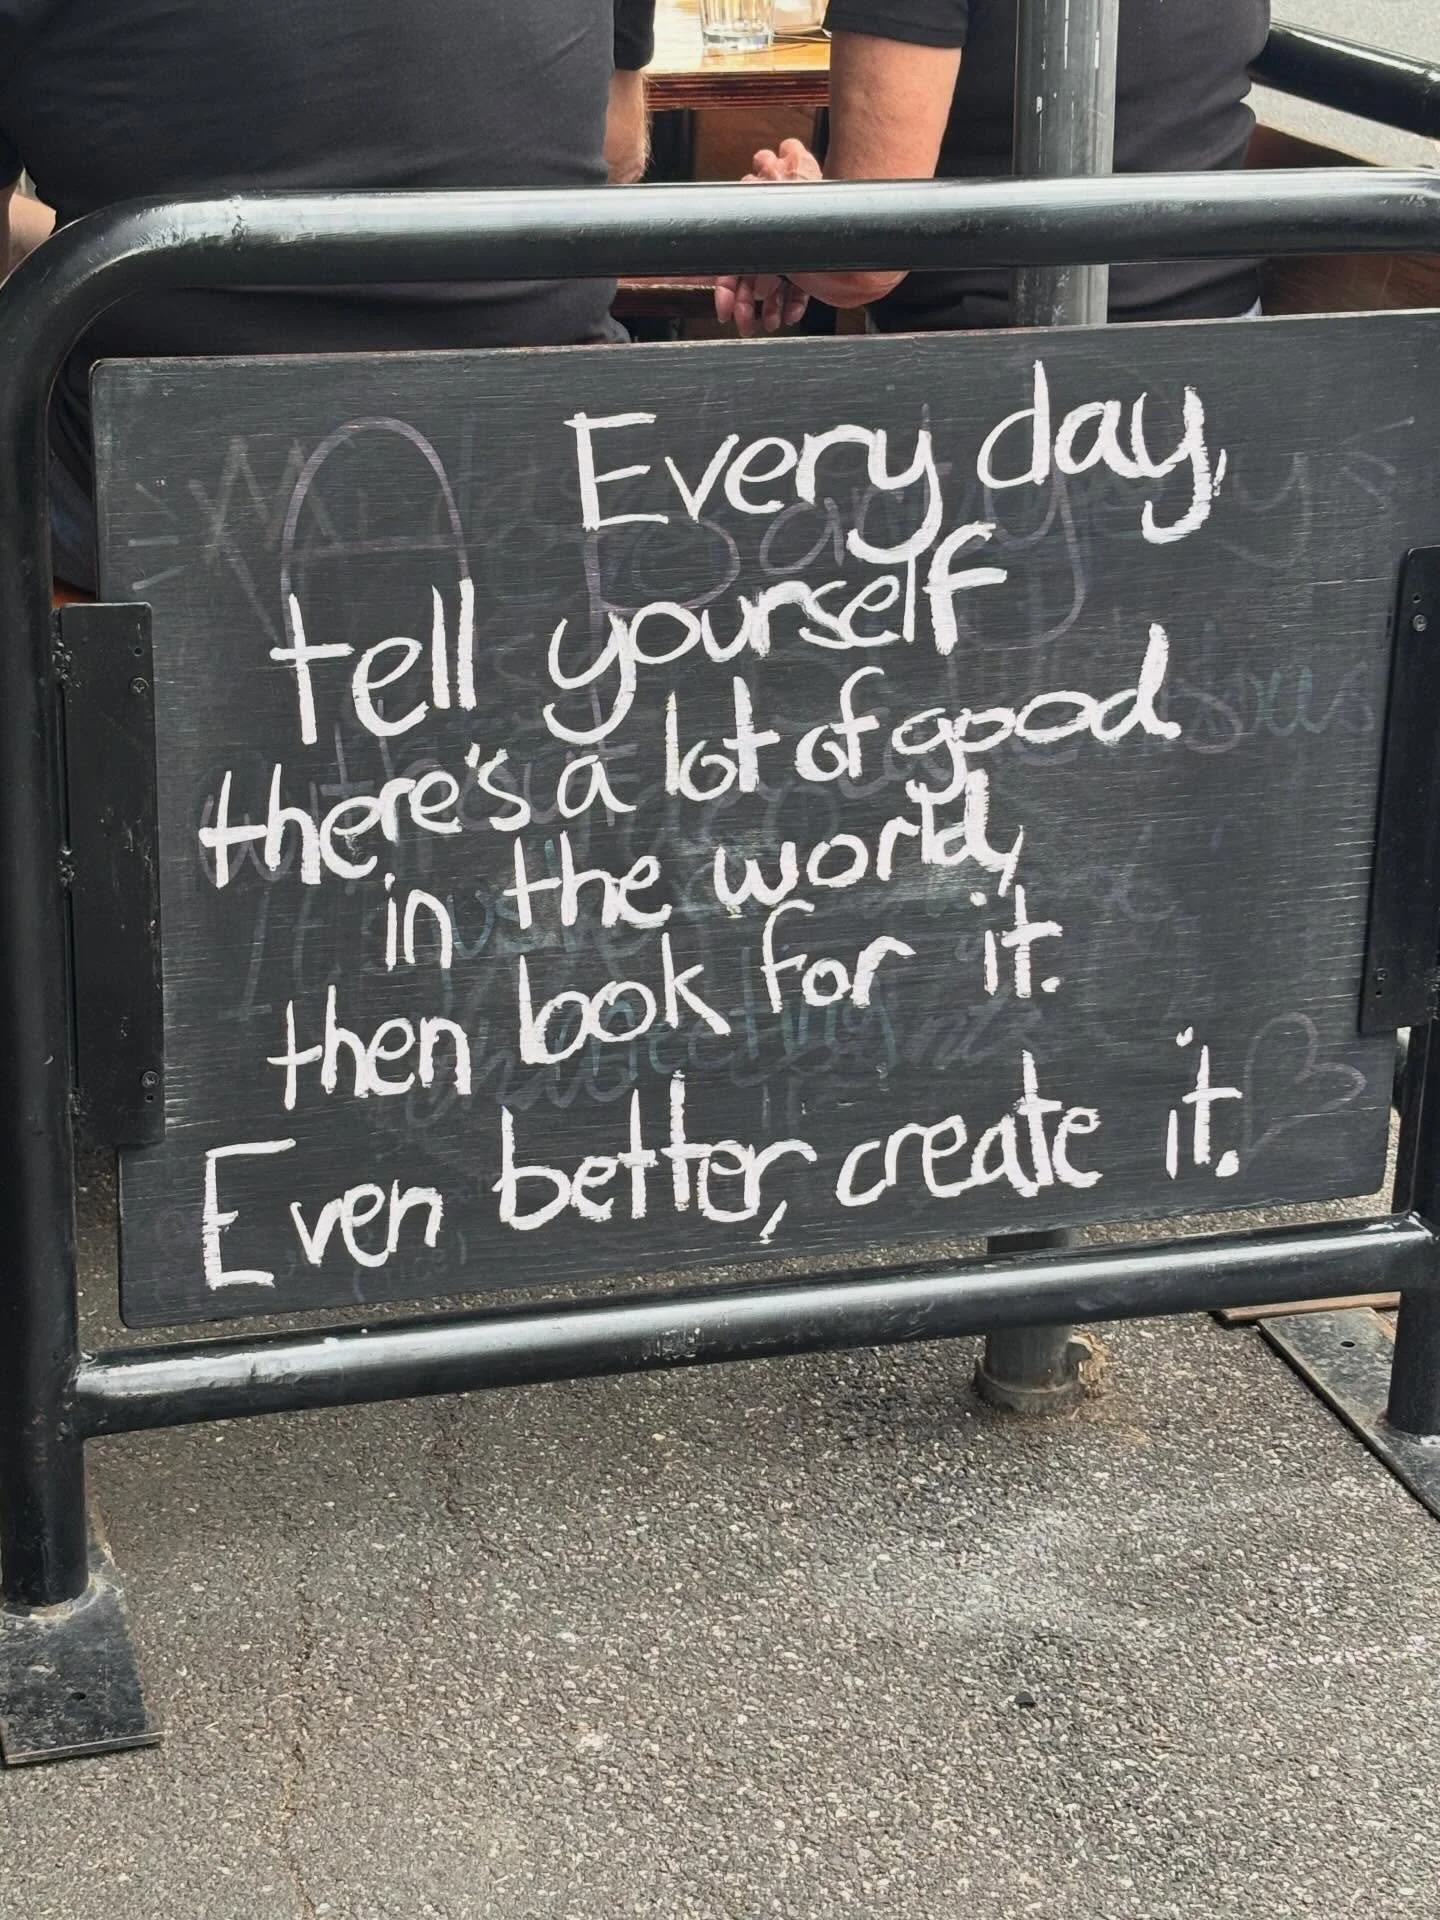 Every day,
tell yourself
there's a lot of good
in the world,
then look for it.
Even better, create it.